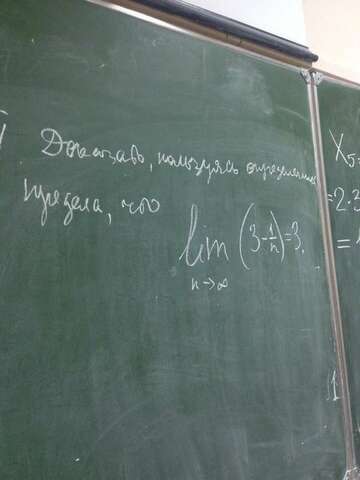 Доказать, пользуясь определением
предела, что
lim (3 - 1/n) = 3.
n→∞
X₅=
=2·3
=
1